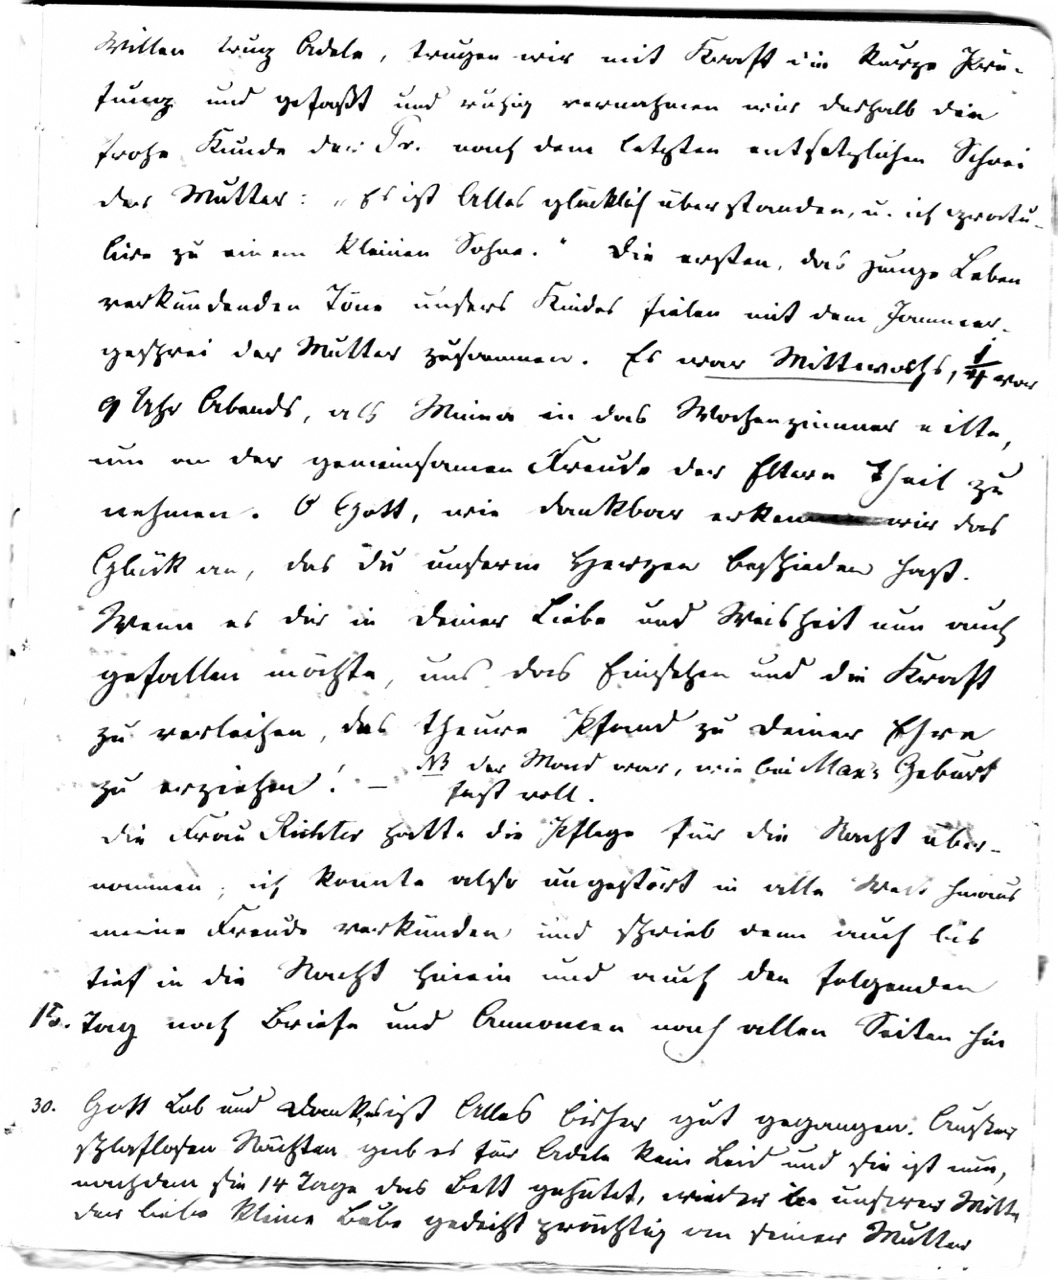 Willen trug Adele, trugen wir mit Kraft die kurze Prü-
fung und gefaßt und ruhig vernahmen wir deshalb die
frohe Kunde der Fr. nach dem letzten entsetzlichen Schrei
der Mutter: „Es ist Alles glücklich überstanden, u. ich gratu-
lire zu einem kleinen Sohne." Die ersten, das junge Leben
verkündenden Töne unsers Kindes fielen mit dem Jammer-
geschrei der Mutter zusammen. Es war Mittwochs, 1/4 vor
9 Uhr Abends, als Minna in das Wochenzimmer eilte,
um an der gemeinsamen Freude der Eltern Theil zu
nehmen. O Gott, wie dankbar erkennen wir das
Glück an, das du unserm Herzen beschieden hast.
Wenn es dir in deiner Liebe und Weisheit nun auch
gefallen möchte, uns das Einsehen und die Kraft
zu verleihen, das theure Pfand zu deiner Ehre
zu erziehen! – NB der Mond war, wie bei Max's Geburt
fast voll.
Die Frau Richter hatte die Pflege für die Nacht über-
nommen, ich konnte also ungestört in alle Welt hinaus
meine Freude verkünden und schrieb denn auch bis
tief in die Nacht hinein und auch den folgenden
15. Tag noch Briefe und Annoncen nach allen Seiten hin
30. Gott Lob und Dank, es ist Alles bisher gut gegangen. Außer
schlaflosen Nächten gab es für Adele kein Leid und sie ist nun,
nachdem sie 14 Tage das Bett gehütet, wieder in unserer Mitte
der liebe kleine Bube gedeiht prächtig an seiner Mutter